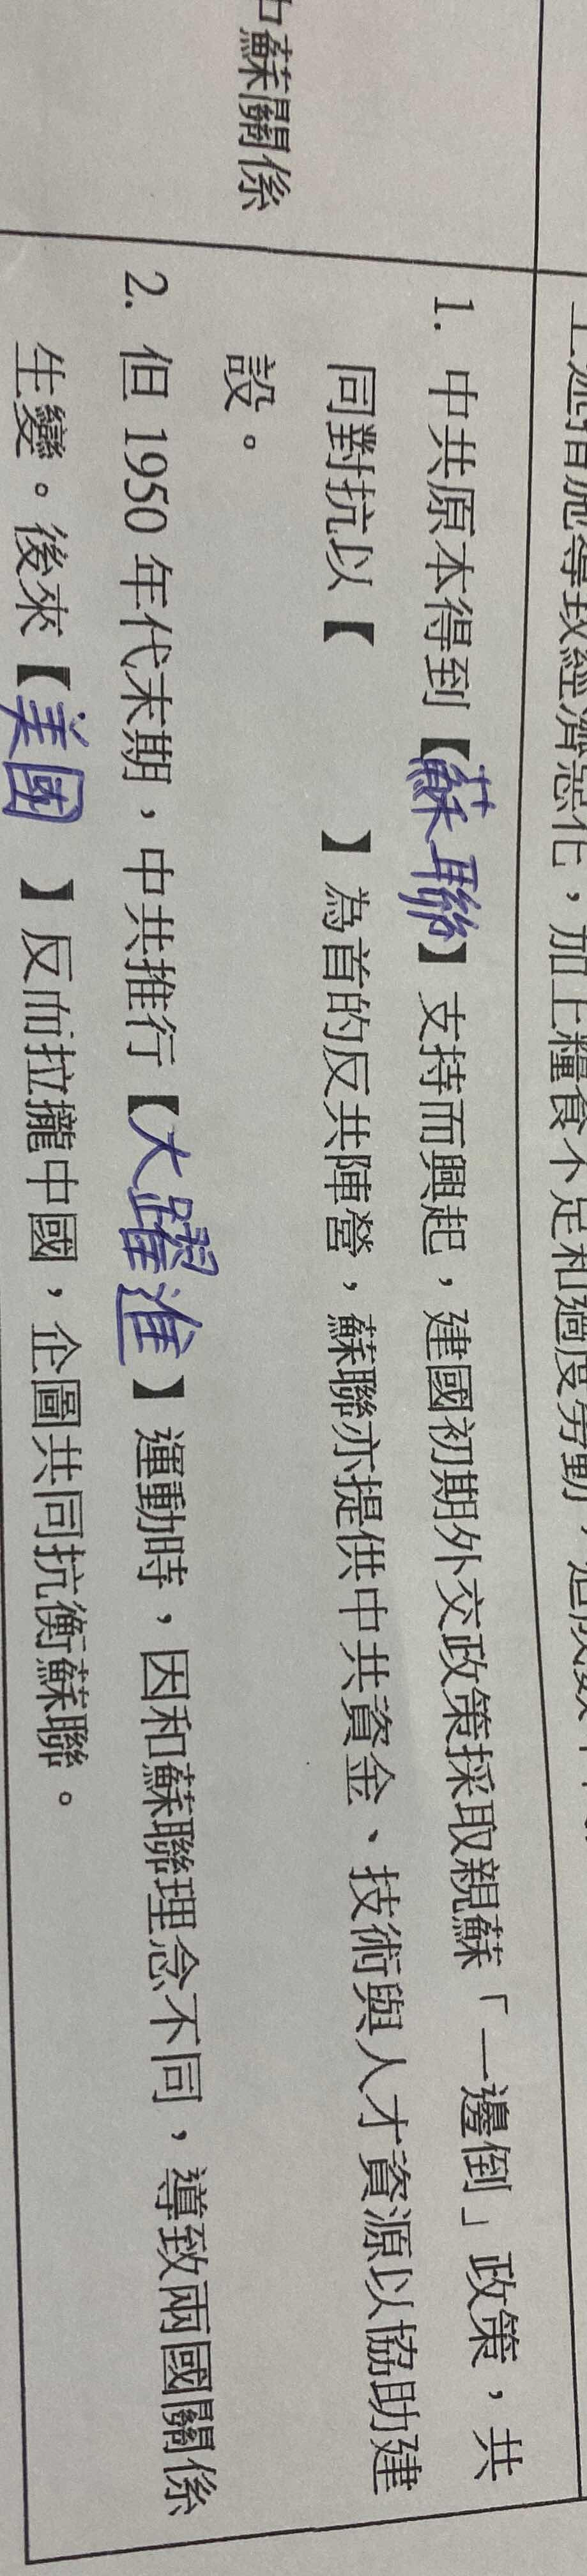 蘇關係
上述措施導致經濟惡化，加上糧食不足和過度勞動，造成數
1. 中共原本得到【蘇聯】支持而興起，建國初期外交政策採取親蘇「一邊倒」政策，共
同對抗以【 】為首的反共陣營，蘇聯亦提供中共資金、技術與人才資源以協助建
設。
2. 但 1950 年代末期，中共推行【大躍進】運動時，因和蘇聯理念不同，導致兩國關係
生變。後來【美國 】反而拉攏中國，企圖共同抗衡蘇聯。